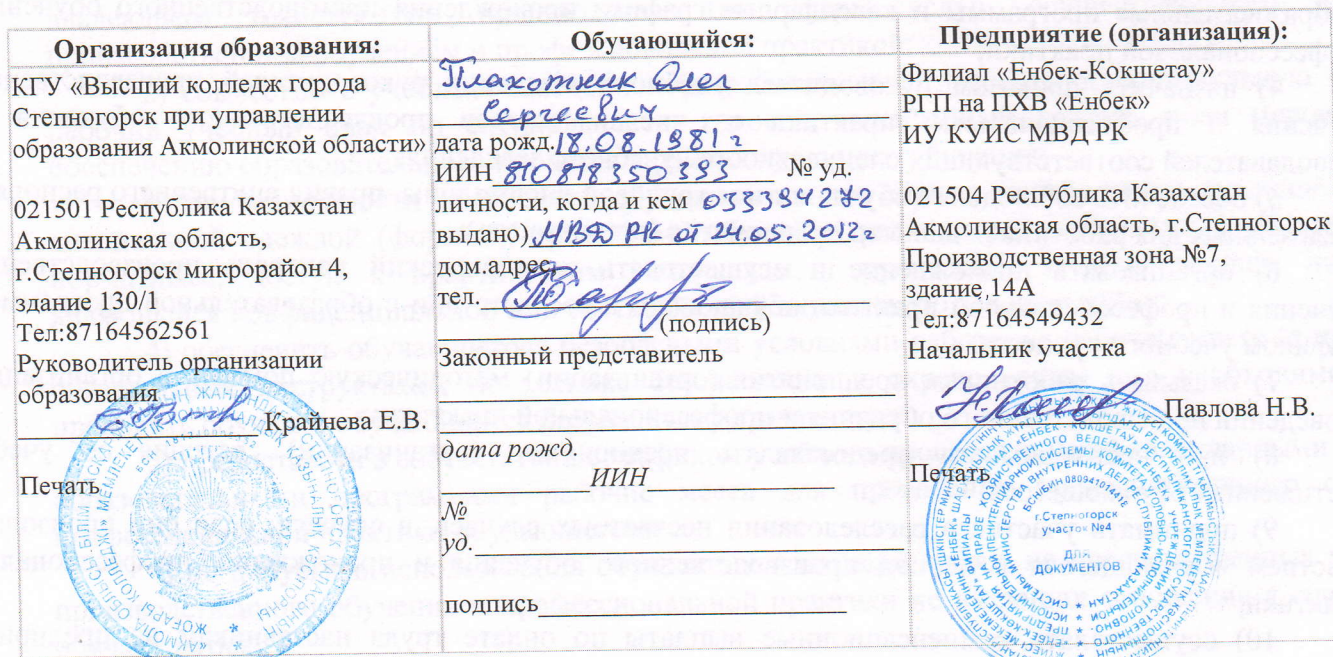 Организация образования:
КГУ «Высший колледж города
Степногорск при управлении
образования Акмолинской области»
021501 Республика Казахстан
Акмолинская область,
г.Степногорск микрорайон 4,
здание 130/1
Тел:87164562561
Руководитель организации
образования
Крайнева Е.В.
Печать
Обучающийся:
Плахотник Олег
Сергеевич
дата рожд. 18.08.1981 г
ИИН 810818350393 № уд.
личности, когда и кем 033394272
выдано) МВД РК от 24.05.2012г
дом.адрес,
тел.
(подпись)
Законный представитель
дата рожд.
ИИН
№
уд.
подпись
Предприятие (организация):
Филиал «Енбек-Кокшетау»
РГП на ПХВ «Енбек»
ИУ КУИС МВД РК
021504 Республика Казахстан
Акмолинская область, г.Степногорск
Производственная зона №7,
здание,14А
Тел:87164549432
Начальник участка
Павлова Н.В.
Печать
г.Степногорск
участок №4
ДЛЯ
ДОКУМЕНТОВ